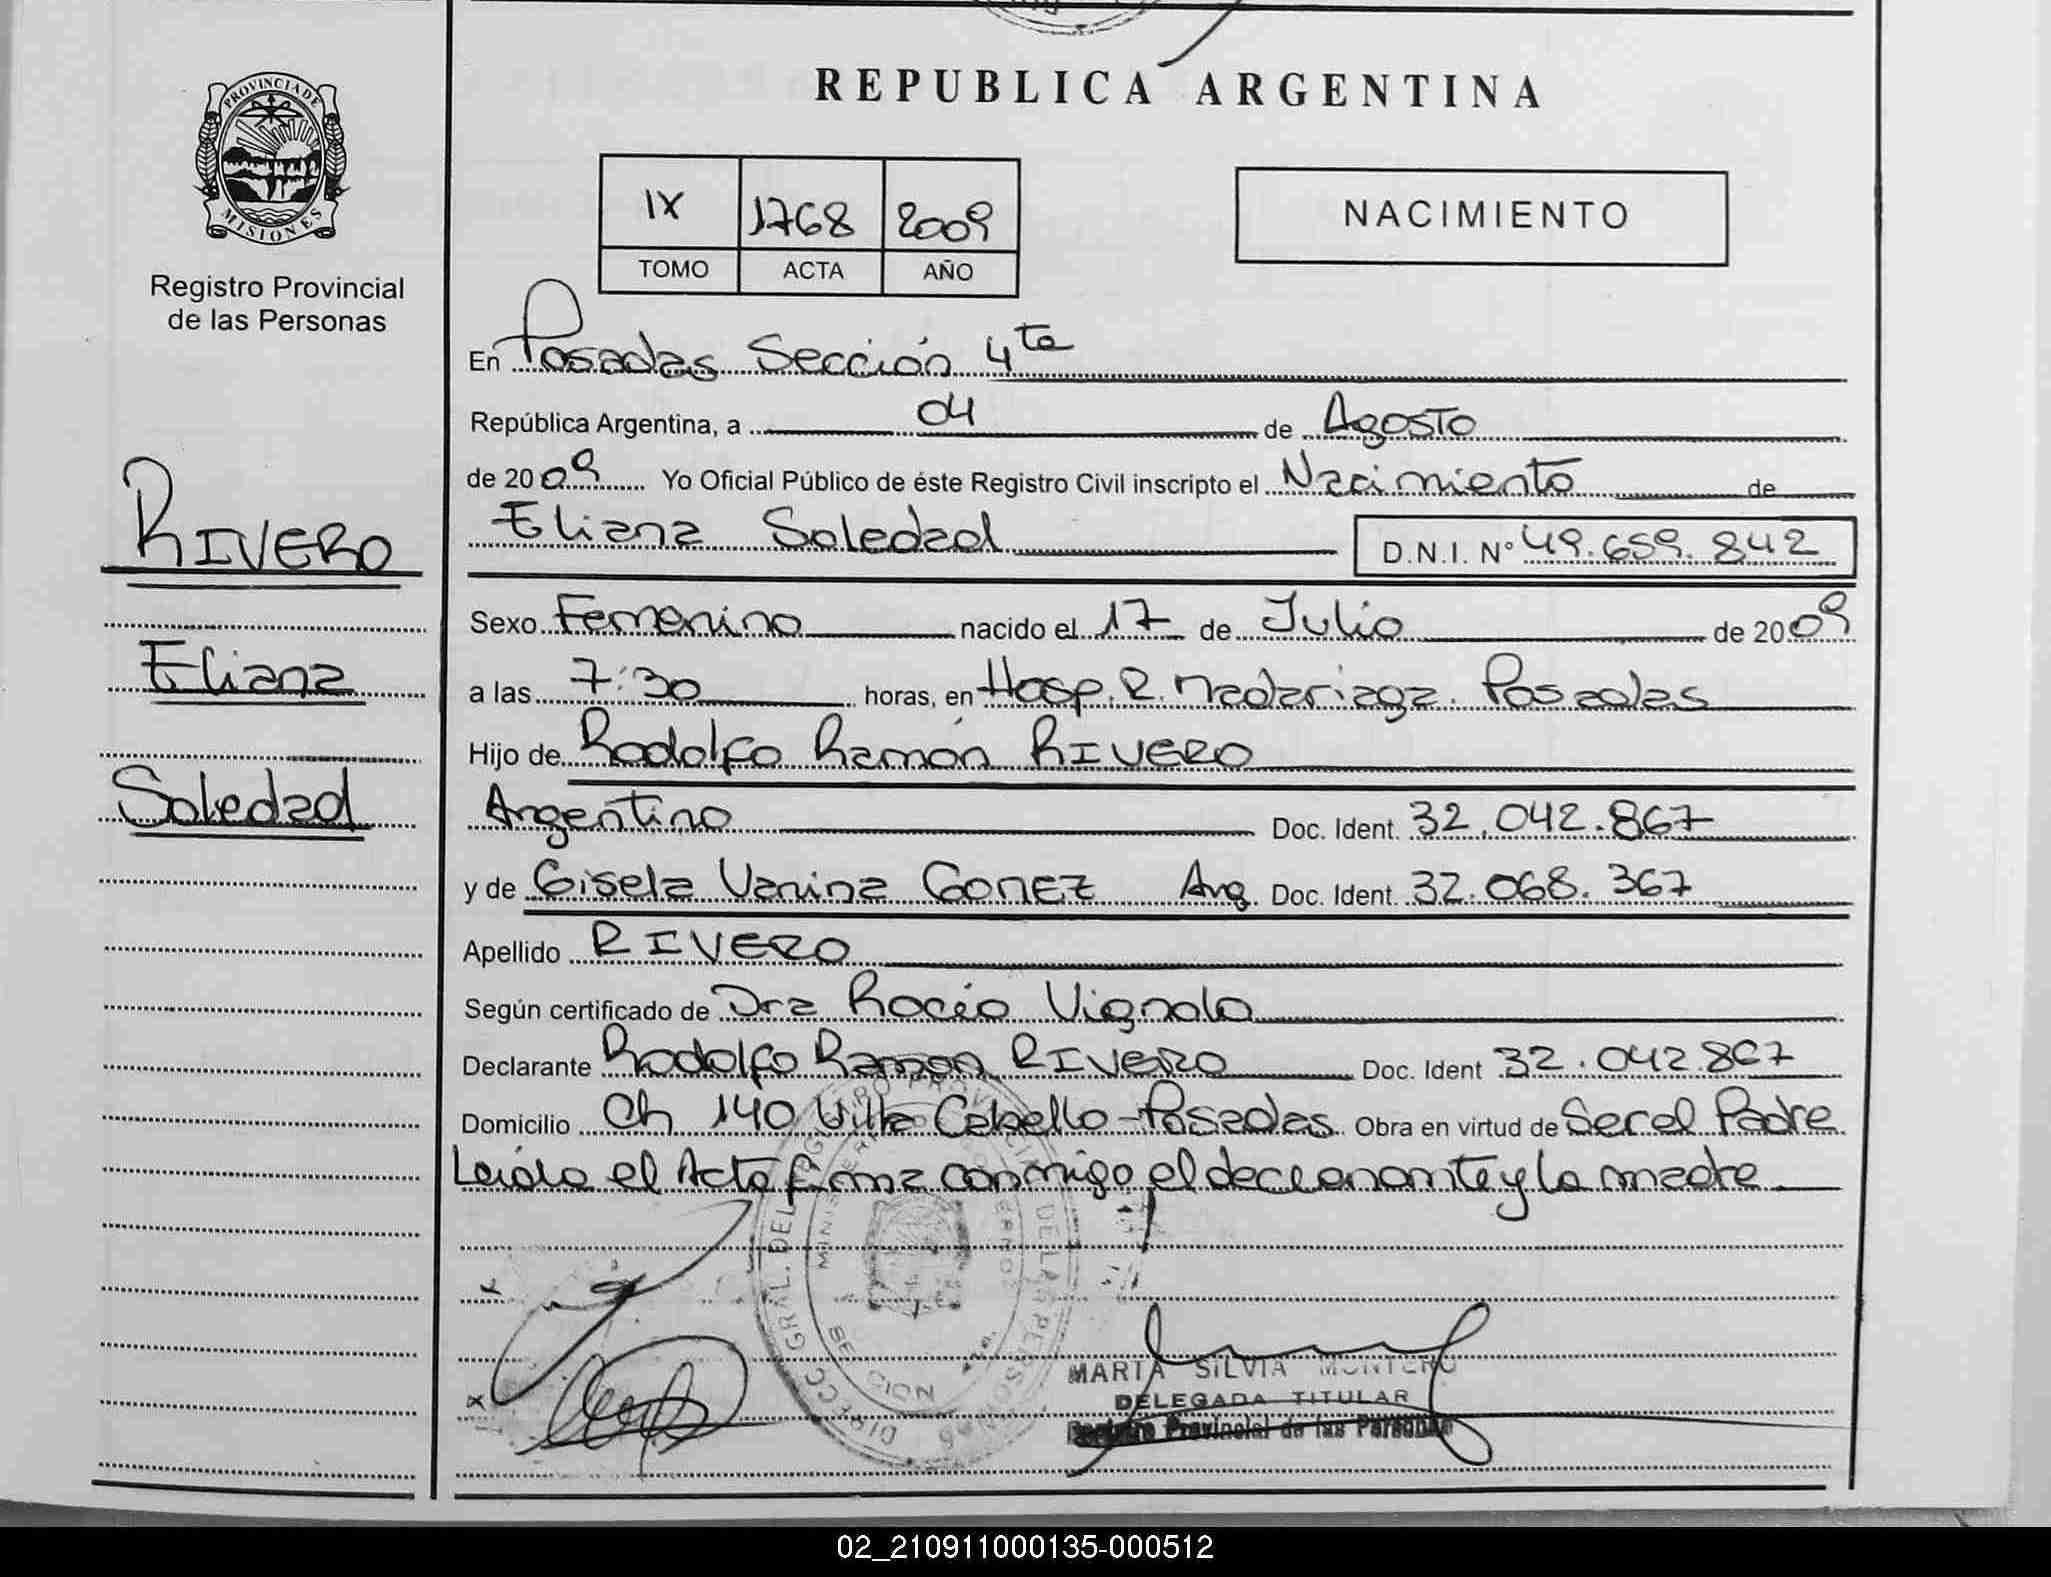 REPUBLICA ARGENTINA
PROVINCIA DE
MISIONES
Registro Provincial
de las Personas
RIVERO
Eliana
Soledad
IX 1768 2009
TOMO ACTA AÑO
NACIMIENTO
En Posadas Sección 4ta
República Argentina, a 04 de Agosto
de 2009 Yo Oficial Público de éste Registro Civil inscripto el Nacimiento de
Eliana Soledad D.N.I. Nº 49.659.842
Sexo Femenino nacido el 17 de Julio de 2009
a las 7:30 horas, en Hosp. R. Madariaga. Posadas
Hijo de Rodolfo Ramón RIVERO
Argentino Doc. Ident. 32.042.867
y de Gisela Vanina GOMEZ Arg. Doc. Ident. 32.068.367
Apellido RIVERO
Según certificado de Dra Rocío Vignolo
Declarante Rodolfo Ramon RIVERO Doc. Ident 32.042.867
Domicilio Ch 140 Villa Cabello - Posadas Obra en virtud de Ser el Padre
Leída el Acta firma conmigo el declarante y la madre
MARTA SILVIA MONTERO
DELEGADA TITULAR
Registro Provincial de las Personas
02_210911000135-000512